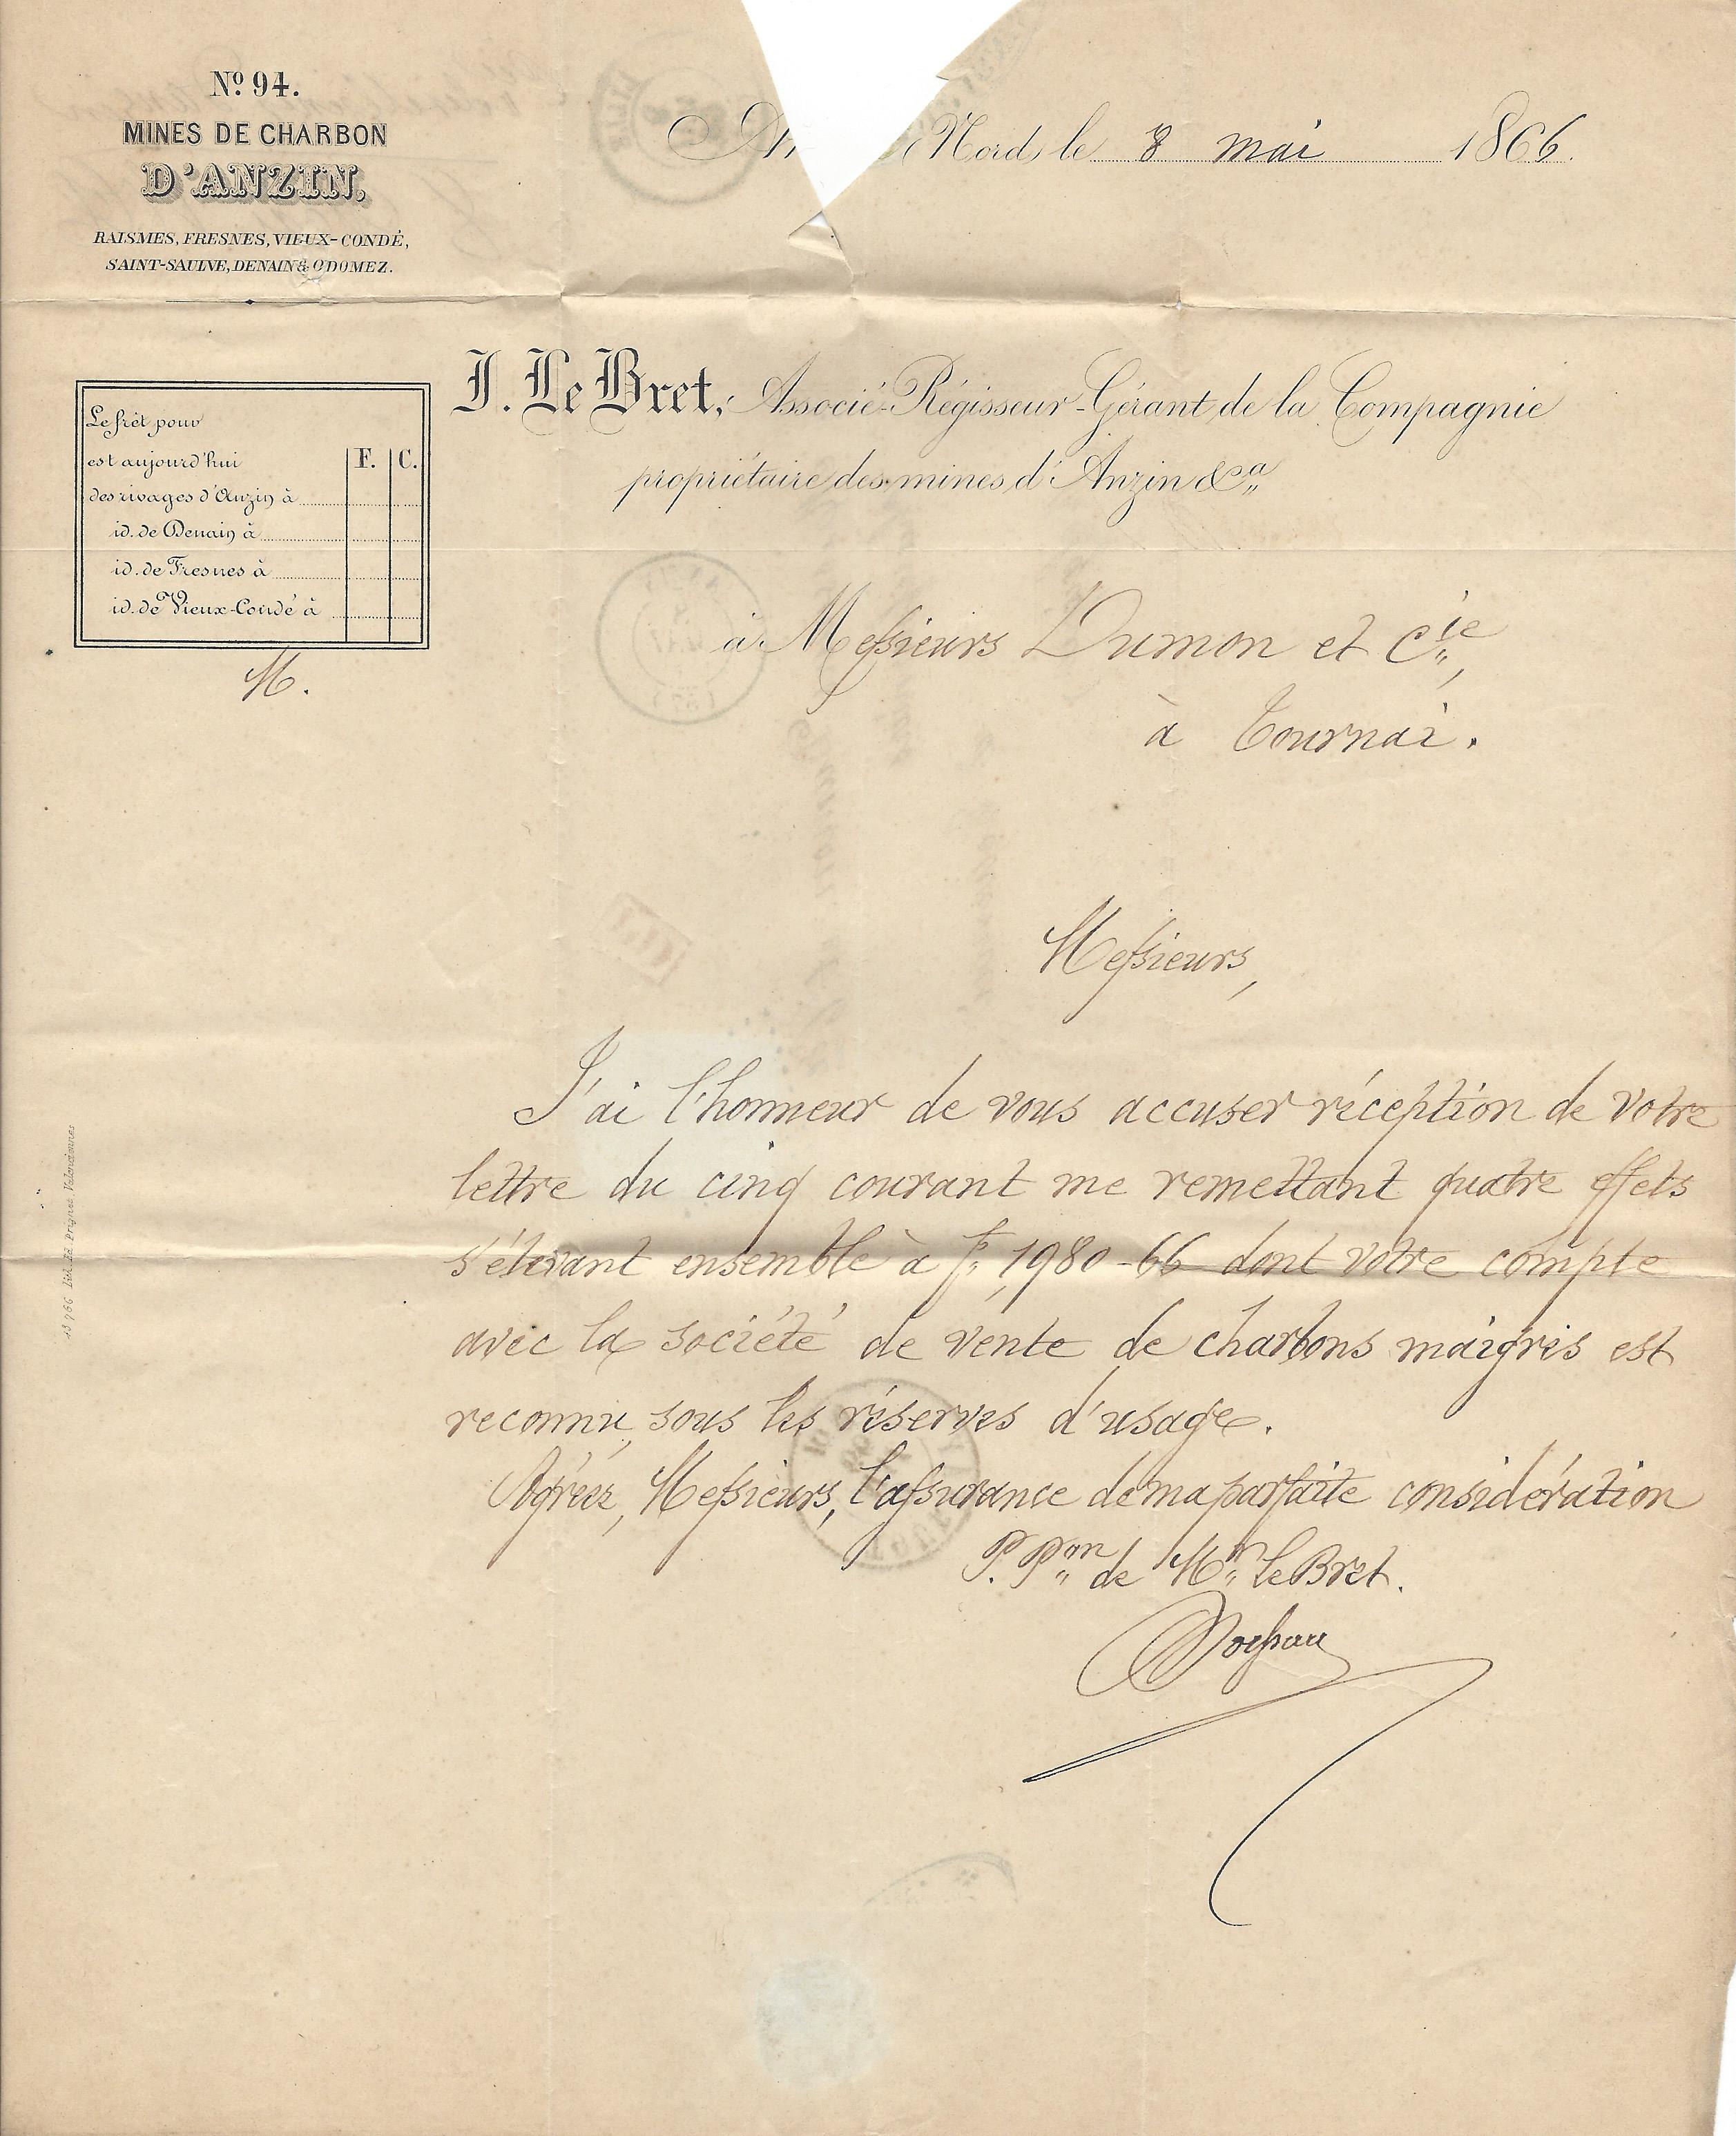 Nº 94.
MINES DE CHARBON
D'ANZIN,
RAISMES, FRESNES, VIEUX-CONDÉ,
SAINT-SAULVE, DENAIN & ODOMEZ.
An Nord, le 8 mai 1866.
J. Le Bret, Associé-Régisseur-Gérant de la Compagnie
propriétaire des mines d'Anzin &ca
Le frêt pour
est aujourd'hui F. C.
des rivages d'Anzin à
id. de Denain à
id. de Fresnes à
id. de Vieux-Condé à
M.
à Messieurs Dumon et Cie,
à Tournai.
Messieurs,
J'ai l'honneur de vous accuser réception de votre
lettre du cinq courant me remettant quatre effets
s'élevant ensemble à f. 1980-66 dont votre compte
avec la société de vente de charbons maigres est
reconnu, sous les réserves d'usage.
Agréez, Messieurs, l'assurance de ma parfaite considération
P. Pon de Mr Le Bret.